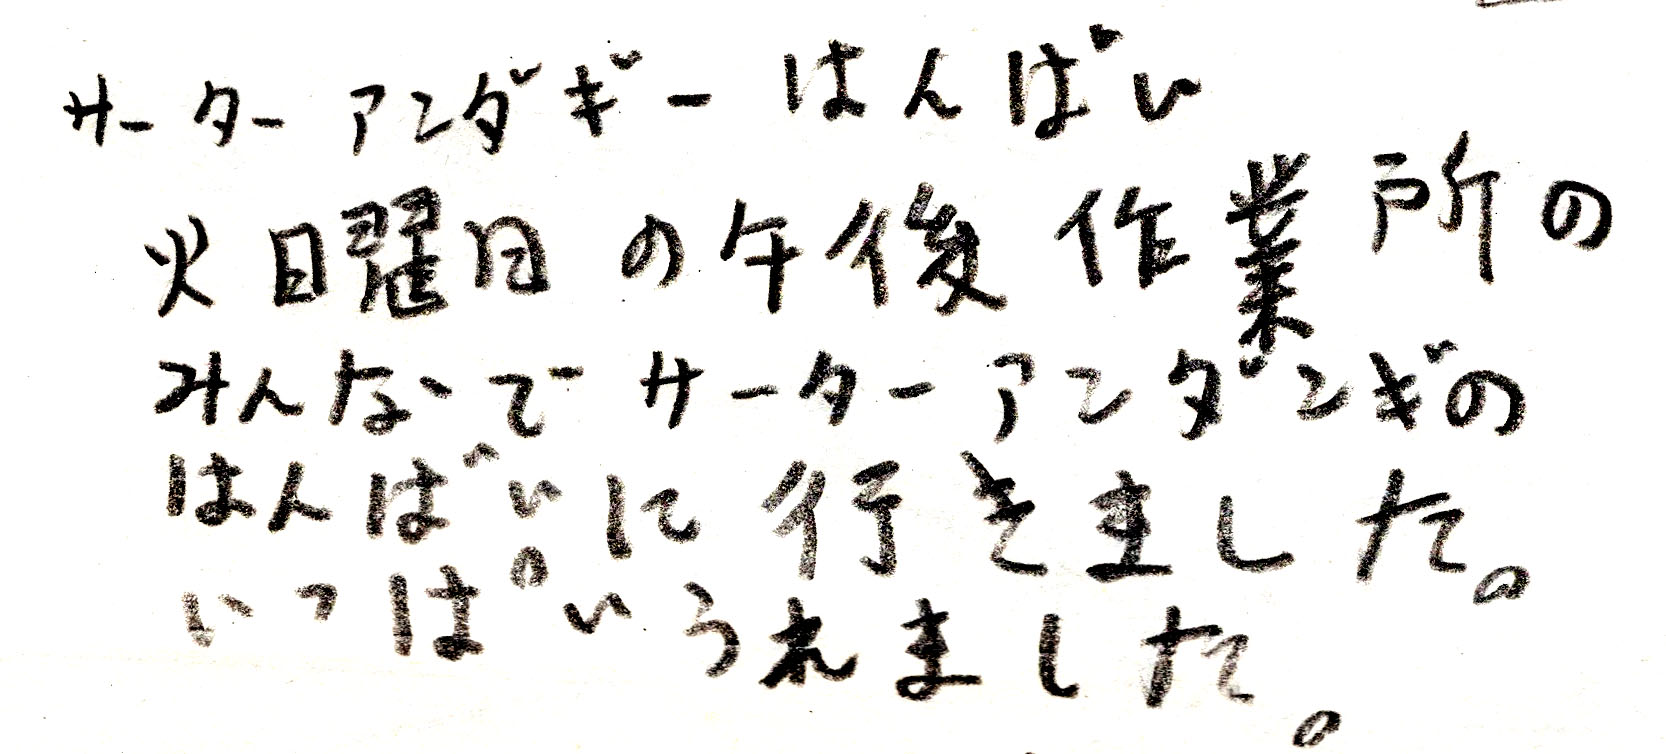 サーターアンダギーはんばい
火曜日の午後作業所の
みんなでサーターアンダンギの
はんばいに行きました。
いっぱいうれました。